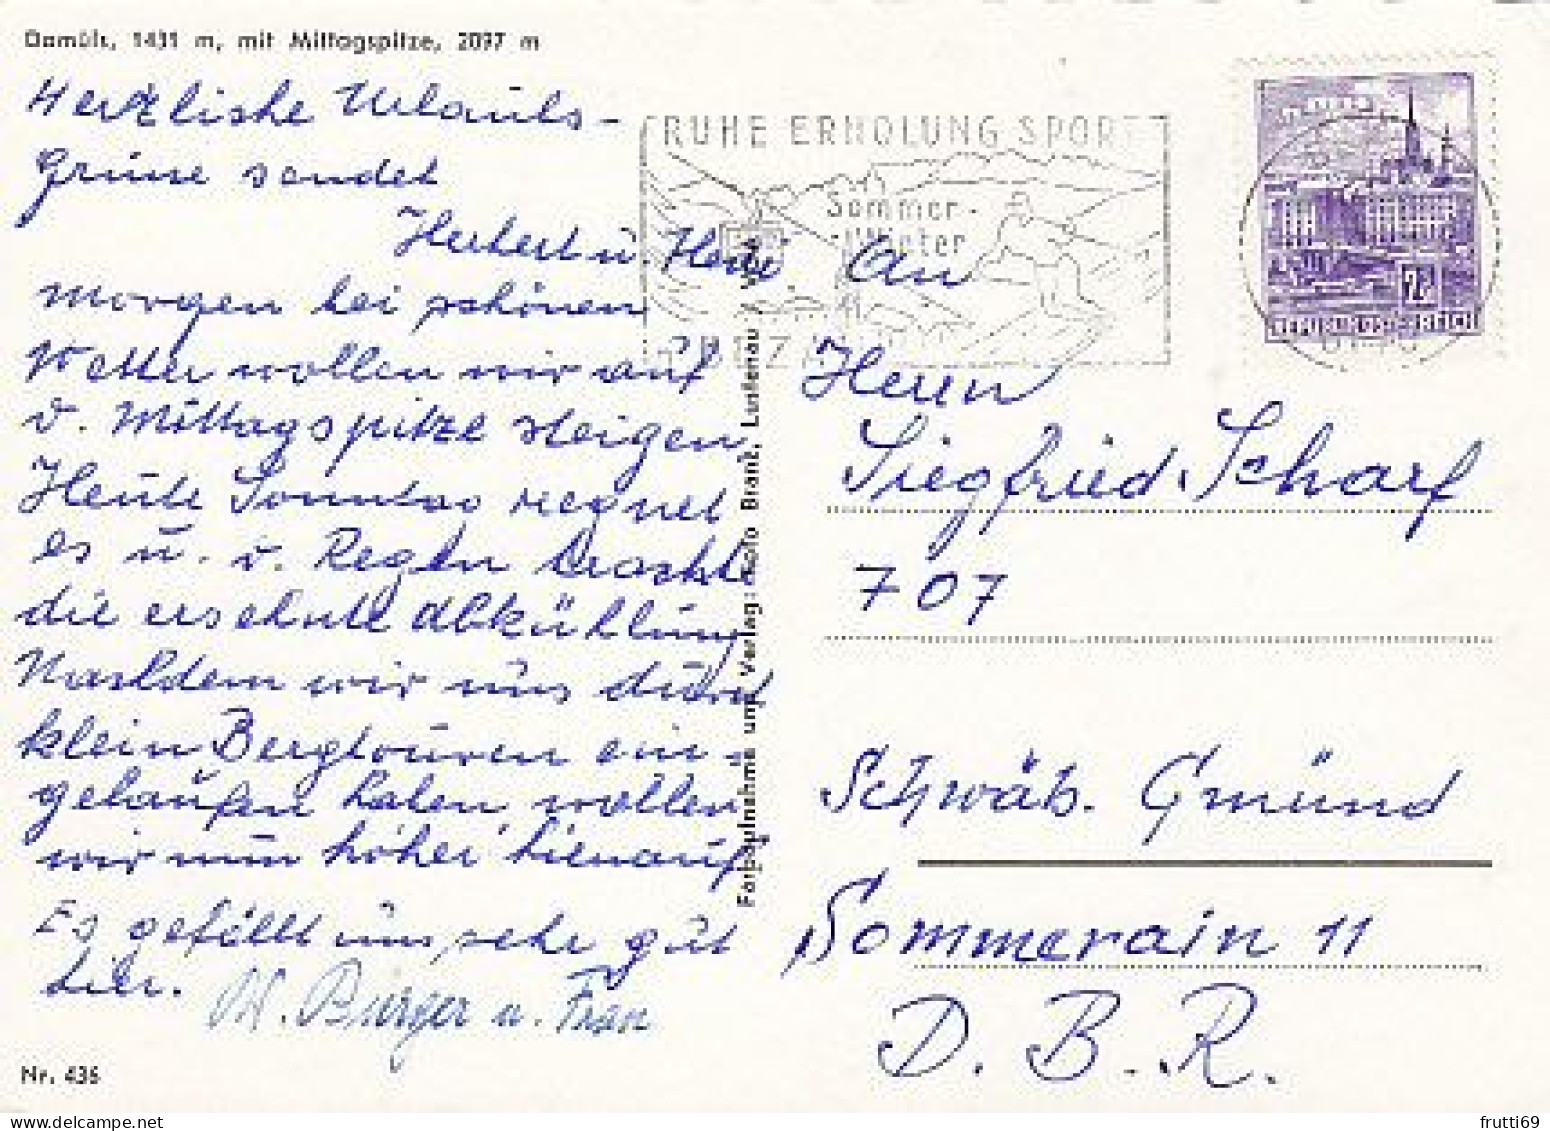 Damüls, 1431 m, mit Mittagspitze, 2097 m
Herzliche Urlaubs-
Grüsse sendet
Herbert u. Hedi
morgen bei schönen
Wetter wollen wir auf
d. Mittagspitze steigen,
Heute Sonntag regnet
es u. d. Regen brachte
die ersehnte Abkühlung
Nachdem wir uns durch
klein Bergtouren ein-
gelaufen haben, wollen
wir nun höher hienauf
Es gefällt uns sehr gut
hier. H. Burger u. Frau
Nr. 436
Farbaufnahme und Verlag: Foto Branz, Lustenau /
RUHE ERHOLUNG SPORT
Sommer-
Winter
REPUBLIK ÖSTERREICH
An
Herrn
Siegfried Scharf
707
Schwäb. Gmünd
Sommerain 11
D. B. R.
frutti69